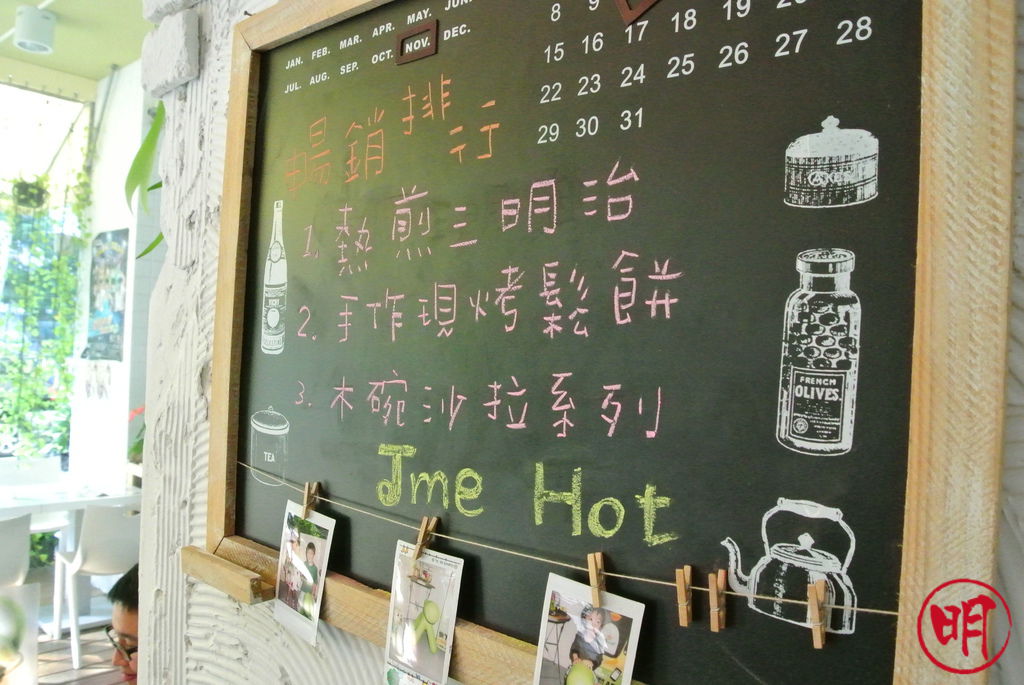 JAN. FEB. MAR. APR. MAY. JUN.
JUL. AUG. SEP. OCT. NOV. DEC.
8 9
15 16 17 18 19
22 23 24 25 26 27 28
29 30 31
暢銷排行
1. 熱煎三明治
2. 手作現烤鬆餅
3. 木碗沙拉系列
Jme Hot
TEA
FRENCH
OLIVES
明